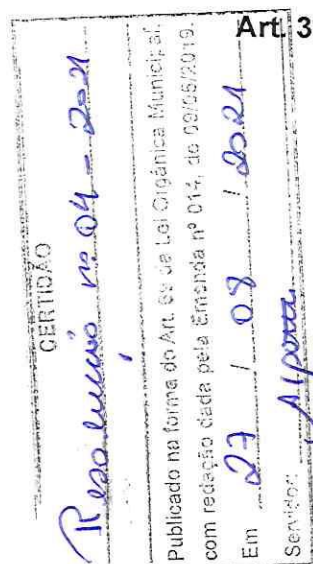 Art. 3
CERTIDÃO
Resolução nº 04 - 2021
Publicado na forma do Art. 69 da Lei Orgânica Municipal,
com redação dada pela Emenda nº 014, de 09/05/2019.
Em 27 / 08 / 2021
Servidor: